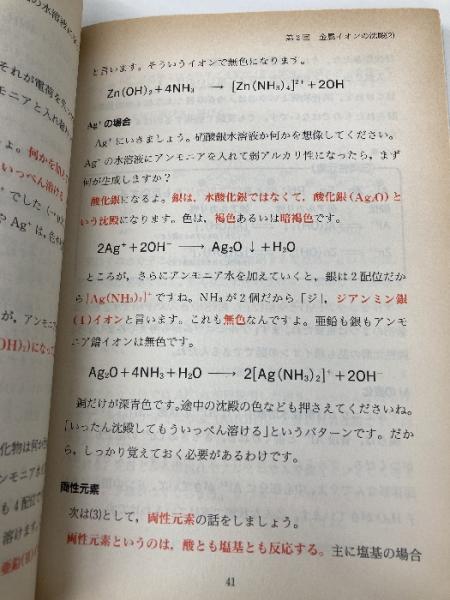 第2回 金属イオンの沈殿(2)
と言います。そういうイオンで無色になります。
Zn(OH)₂+4NH₃ → [Zn(NH₃)₄]²⁺+2OH⁻
Ag⁺の場合
Ag⁺にいきましょう。硝酸銀水溶液か何かを想像してください。
Ag⁺の水溶液にアンモニアを入れて弱アルカリ性になったら，まず
何が生成しますか？
酸化銀になるよ。銀は，水酸化銀ではなくて，酸化銀(Ag₂O)と
いう沈殿になります。色は，褐色あるいは暗褐色です。
2Ag⁺+2OH⁻ → Ag₂O↓+H₂O
ところが，さらにアンモニア水を加えていくと，銀は2配位だか
ら[Ag(NH₃)₂]⁺ですね。NH₃が2個だから「ジ」，ジアンミン銀
(Ⅰ)イオンと言います。これも無色なんですよ。亜鉛も銀もアンモ
ニア錯イオンは無色です。
Ag₂O+4NH₃+H₂O → 2[Ag(NH₃)₂]⁺+2OH⁻
銅だけが深青色です。途中の沈殿の色なども押さえてくださいね。
「いったん沈殿してもういっぺん溶ける」というパターンです。だか
ら，しっかり覚えておく必要があるわけです。
両性元素
次は(3)として，両性元素の話をしましょう。
両性元素というのは，酸とも塩基とも反応する。主に塩基の場合
41
の水溶液に
それが電荷を
モニアと入れ
よ。何かを加え
いっぺん溶ける
でした
や Ag⁺は，色
が，アンモニ
OH)₂)になって
化物は何か
ンモニア水
も4配位で
溶けます。
亜鉛(Ⅱ)